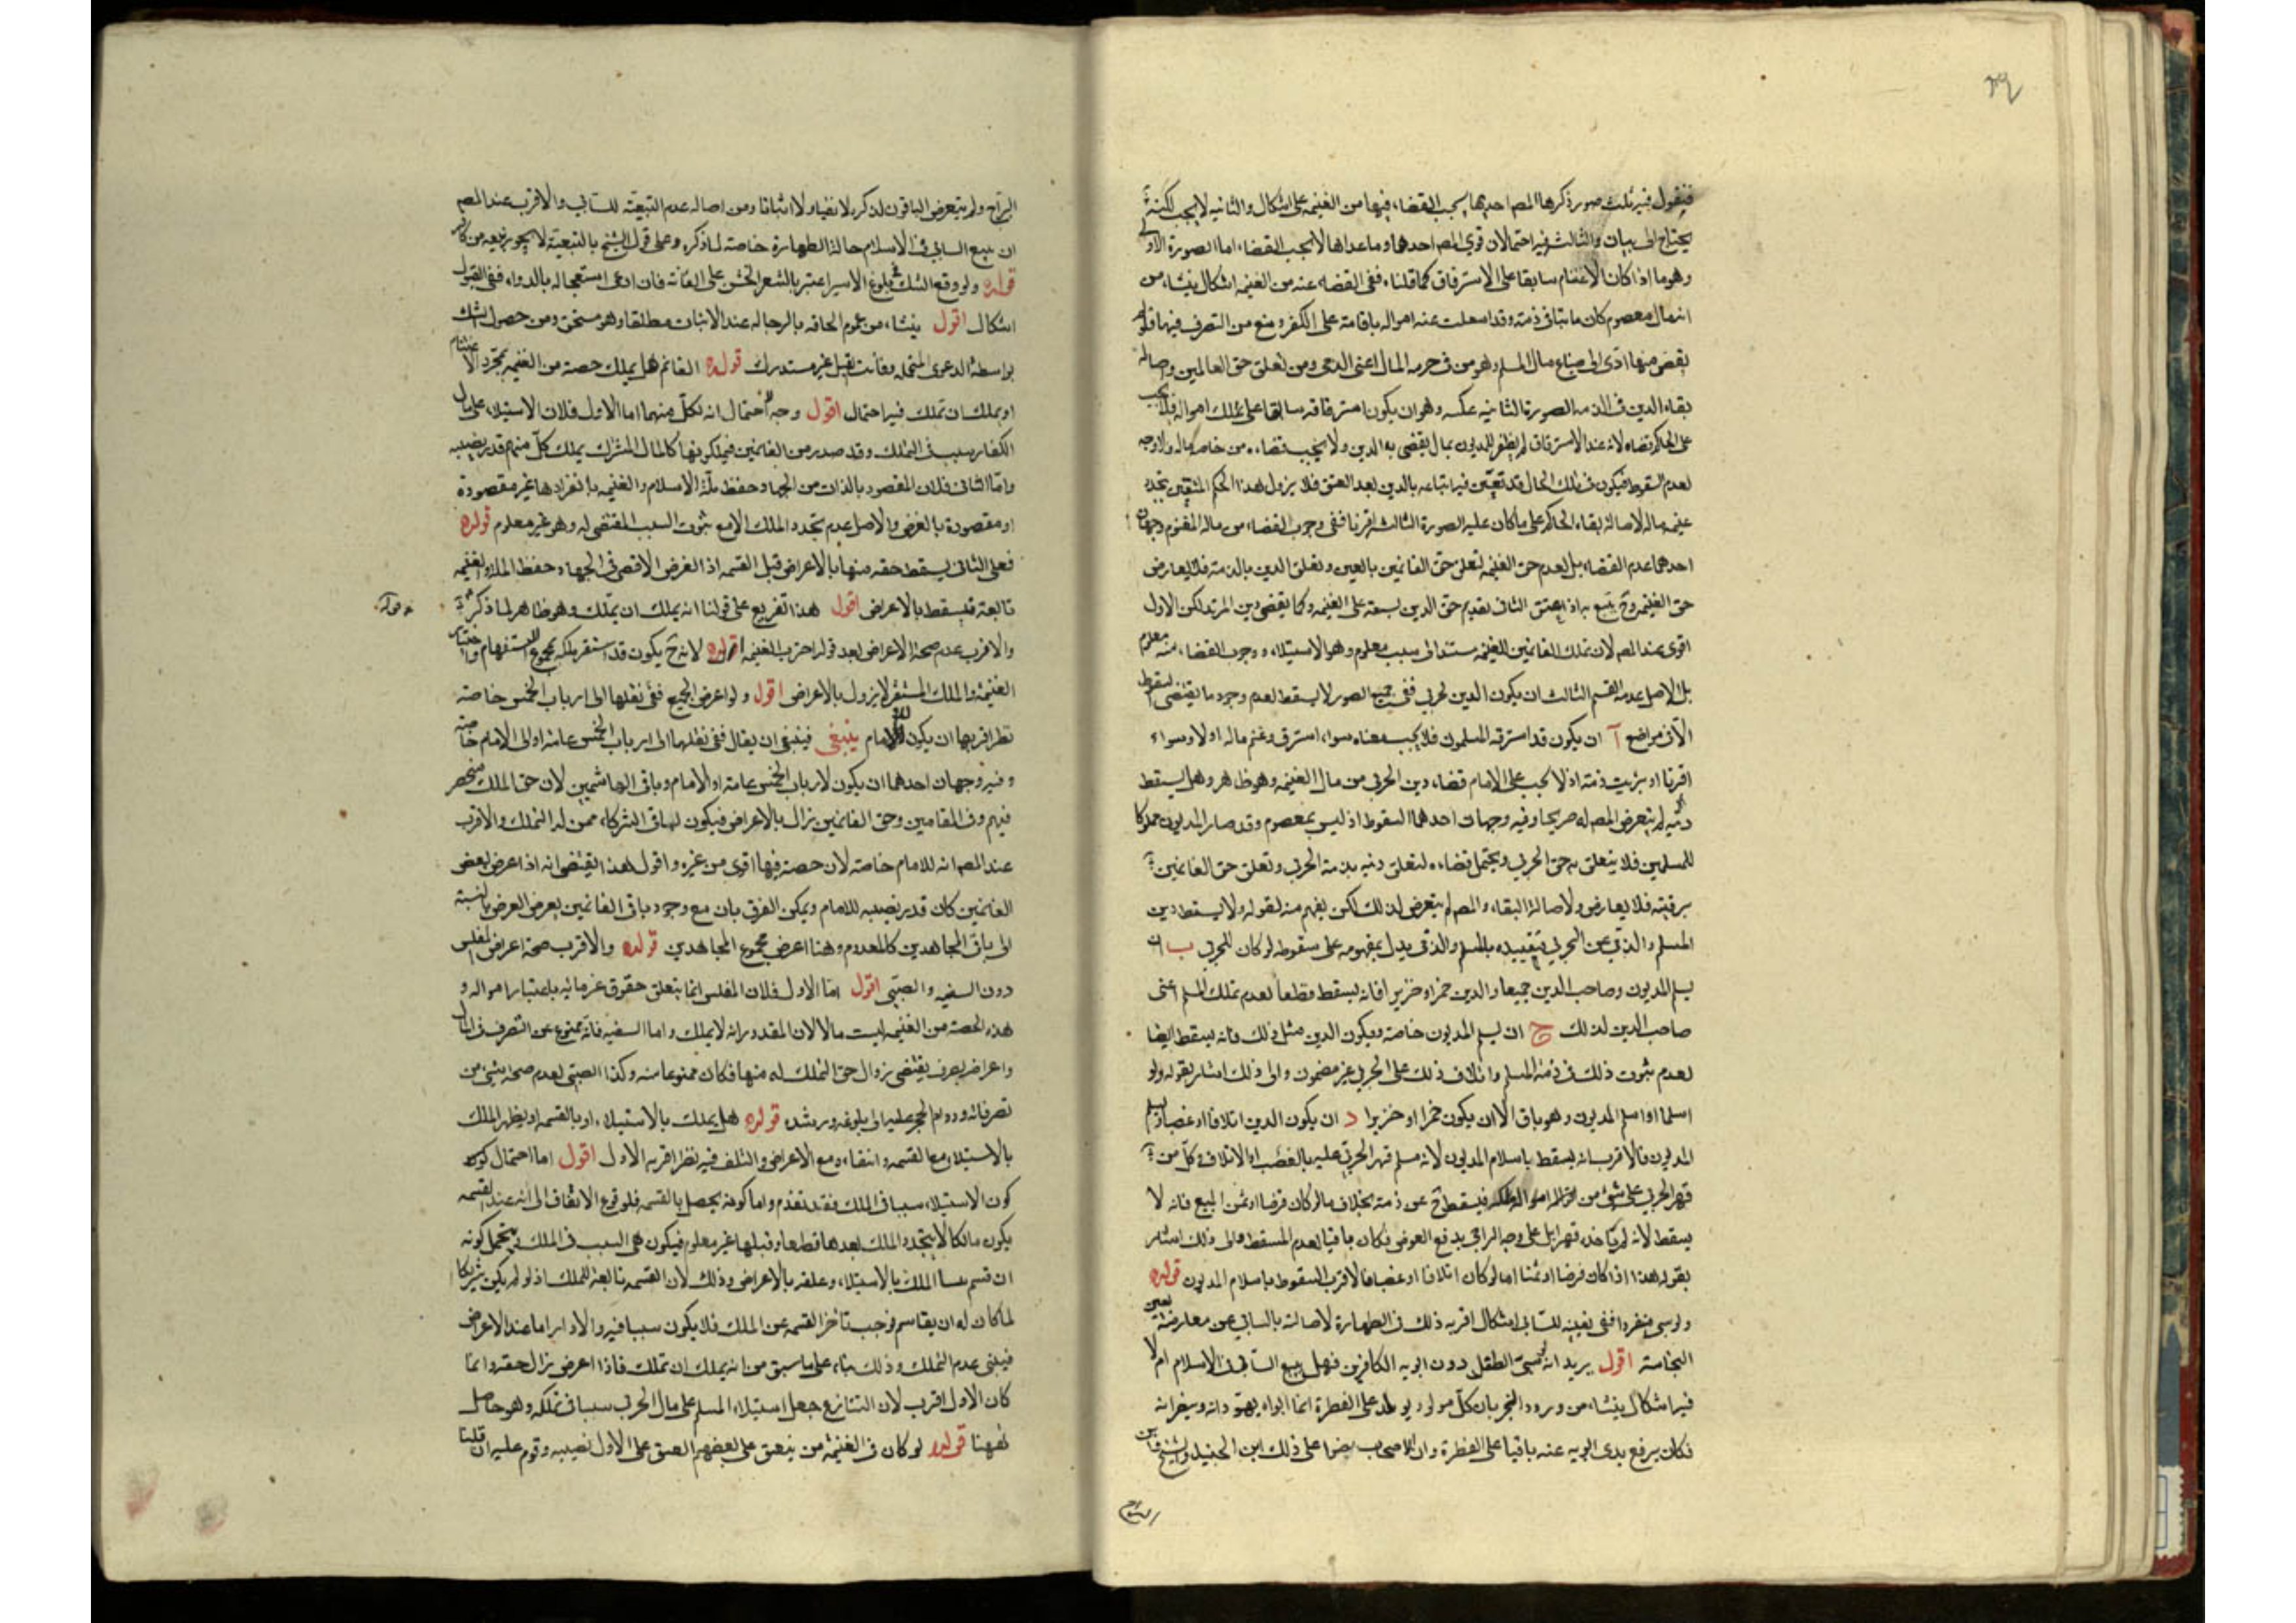 فنقول فيه ثلث صور ذكرها المص احدها يجب القضاء فيها من الغنيمه على اشكال والثانيه لا يجب لكنه
يحتاج الى بيان والثالث فيه احتمالان قوى المص احدهما وما عداها لا يجب القضاء اما الصورة الاولى
وهو ما اذا كان الاغتنام سابقا على الاسترقاق كما قلناه ففى القضاء عنه من الغنيمه اشكال ينشاء من
انه مال معصوم كان ثابتا فى ذمته وقد امعلت عنه امواله باقامته على الكفر ومنع من التصرف فيها فلو لم
يقض منها ادى الى ضياع مال المسلم وهو من فى حرمه المال اعنى الذمى ومن تعلق حق الغانمين واصالة
بقاء الدين فى الذمه الصورة الثانيه عكسه وهو ان يكون استرقاقه سابقا على تملك امواله فلا يجب
على الحاكم قضاه لانه عند الاسترقاق لم يظفر للمديون بمال يقضى به الدين ولا يجب قضاءه من خاص ماله ولا وجه
لعدم السقوط فيكون فى ذلك الحال قد تعين فيه اتباعه بالدين بعد العتق فلا يزول هذا الحكم المتيقن بتجدد
غنيمه ماله لاصالة بقاء الحاكم على ما كان عليه الصورة الثالثه اقترنا ففى وجوب القضاء من ماله المغنوم وجهان
احدهما عدم القضاء بل تقدم حق الغنيمه لتعلق حق الغانمين بالعين وتعلق الدين بالذمة فلا يعارض
حق الغنيمه وح يتبع به اذا اعتق الثانى تقديم حق الدين لسبقه على الغنيمه وكما يقضى دين المرتد لكن الاول
اقوى عند المص لان تملك الغانمين للغنيمه مستند الى سبب معلوم وهو الاستيلاء ووجوب القضاء منه غير معلوم
بل الاصل عدمه القسم الثالث ان يكون الدين لحربى ففى جميع الصور لا يسقط لعدم وجود ما يقتضى السقوط
الا فى مواضع آ ان يكون قد استرقه المسلمون فلا يجب معناه سواء استرق وغنم ماله او لا وسواء
اقترنا او برئت ذمته اذ لا يجب على الامام قضاء دين الحربى من مال الغنيمه وهو ظاهر وهل يسقط
دينه لم يتعرض المص له صريحا وفيه وجهان احدهما السقوط اذ ليس بمعصوم وقد صار المديون مملوكا
للمسلمين فلا يتعلق به حق الحربى ويحتمل قضاءه لتعلق دينه بذمة الحربى وتعلق حق الغانمين
برقبته فلا يعارض ولاصالة البقاء والمص لم يتعرض لذلك لكن يفهم منه لقوله ولا يسقط دين
المسلم والذمى عن الحربى فتقييده بالمسلم والذمى يدل بمفهومه على سقوطه لو كان للحربى ب ان
يسلم المديون وصاحب الدين جميعا والدين خمرا وخنزيرا فانه يسقط قطعا لعدم تملك المسلم اعنى
صاحب الدين لذلك ج ان يسلم المديون خاصة ويكون الدين مثل ذلك فانه يسقط ايضا
لعدم ثبوت ذلك فى ذمة المسلم واتلاف ذلك على الحربى غير مضمون والى ذلك اشار بقوله ولو
اسلما او اسلم المديون وهو باق الا ان يكون خمرا او خنزيرا د ان يكون الدين اتلافا او غصبا ثم يسلم
المديون فالاقرب انه يسقط باسلام المديون لانه مسلم قهر الحربى عليه بالغصب او الاتلاف وكل من
قهر الحربى على شئ من امواله ملكه فيسقط ح عن ذمته بخلاف ما لو كان قرضا او ثمن المبيع فانه لا
يسقط لانه لم ياخذه قهرا بل على وجه التراضى بدفع العوض فكان باقيا لعدم المسقط والى ذلك اشار
بقوله هذا اذا كان قرضا او ثمنا اما لو كان اتلافا او غصبا فالاقرب السقوط باسلام المديون قوله
ولو سبى منفردا ففى تبعيته للسابى اشكال اقربه ذلك فى الطهارة لاصالته بالسالبى عن معارضة يقين
النجاسة اقول يريد انه لو سبى الطفل دون ابويه الكافرين فهل يتبع السابى فى الاسلام ام لا
فيه اشكال ينشاء من ورود الخبر بان كل مولود يولد على الفطرة انما ابواه يهودانه وينصرانه
فكان برفع يدى ابويه عنه باقيا على الفطرة وان الاصحاب نصوا على ذلك ابن الجنيد والشيخ وابن
البراج ولم يتعرض الباقون لذكره لا نفيا ولا اثباتا ومن اصالة عدم التبعية للسابى والاقرب عند المص
ان يتبع السابى فى الاسلام حالة الطهارة خاصة لما ذكره وعلى قول الشيخ بالتبعية لا يجوز بيعه من كافر
قوله ولو وقع الشك فى بلوغ الاسير اعتبر بالشعر الخشن على العانة فان ادعى استعجاله بالدواء ففى القبول
اشكال اقول ينشاء من عموم الحاقه بالرجاله عند الانبات مطلقا وهو متحقق ومن حصول الشك
بواسطة الدعوى المحتمله وفائت القتل غير مستدرك قوله الغانم هل يملك حصة من الغنيمه بمجرد الاغتنام
او يملك ان تملك فيه احتمال اقول وجه الاحتمال انه لكل منهما اما الاول فلان الاستيلاء على مال
الكفار سبب فى التملك وقد صدر من الغانمين فيملكونها كالمال المشترك يملك كل منهم قدر نصيبه
واما الثانى فلان المقصود بالذات من الجهاد حفظ ملة الاسلام والغنيمه بانفرادها غير مقصودة
او مقصودة بالعرض والاصل عدم تجدد الملك الا مع ثبوت السبب المقتضى له وهو غير معلوم قوله
فعلى الثانى يسقط حقه منها بالاعراض قبل القسمه اذ الغرض الاقصى فى الجهاد حفظ الملة والغنيمه
تابعة فيسقط بالاعراض اقول هذا تفريع على قولنا انه يملك ان يتملك وهو ظاهر لما ذكر
والاقرب عدم صحة الاعراض بعد قوله اخترت الغنيمه قوله لانه ح يكون قد استقر ملكه بمجموع الاستغنام واختيار
الغنيمة والملك المستقر لا يزول بالاعراض اقول ولو اعرض الجميع ففى نقلها الى ارباب الخمس خاصة
نظر اقربها ان يكون للامام ينبغى فينبغى ان يقال ففى نقلها الى ارباب الخمس عامة او الى الامام خاصة
وفيه وجهان احدهما ان يكون لارباب الخمس عامة او الامام وباقى الهاشميين لان حق الملك منحصر
فيهم وفى المقامين وحق الغانمين زال بالاعراض فيكون لباقى الشركاء ممن له التملك والاقرب
عند المص انه للامام خاصة لان حصته فيها اقوى من غيره واقول هذا يقتضى انه اذا اعرض بعض
الغانمين كان قدر نصيبه للامام ويمكن الفرق بان مع وجود باقى الغانمين بعرض العرض بالنسبة
الى باقى المجاهدين كالمعدوم وهنا اعرض مجموع المجاهدين قوله والاقرب صحة اعراض المفلس
دون السفيه والصبى اقول اما الاول فلان المفلس انما يتعلق حقوق غرمائه باعتبار امواله و
هذه الحصة من الغنيمه ليست مالا لان المقدور انه لا يملك واما السفيه فانه ممنوع عن التصرف فى المال
واعراضه تصرف يقتضى زوال حق التملك له منها فكان ممنوعا منه وكذا الصبى لعدم صحة شئ من
تصرفاته ودوام الحجر عليه الى بلوغه ورشده قوله هل يملك بالاستيلاء او بالقسمه او يظهر الملك
بالاستيلاء مع القسمه وانتفاءه مع الاعراض والتلف فيه نظر اقربه الاول اقول اما احتمال كون
كون الاستيلاء سببا فى الملك فقد تقدم واما كونه يحصل بالقسمه فلوقوع الاتفاق الى انه عند القسمه
يكون مالكا لا يتجدد الملك بعدها قطعا وقبلها غير معلوم فيكون هى السبب فى الملك ويحتمل كونه
ان قسم بينا الملك بالاستيلاء وعلقه بالاعراض وذلك لان القسمه تابعة للملك اذ لو لم يكن شريكا
لما كان له ان يقاسم فوجب تاخر القسمه عن الملك فلا يكون سببا فيه والادار اما عند الاعراض
فينبى عدم التملك وذلك بناء على ما سبق من انه يملك ان تملك فاذا اعرض زال حقه وانما
كان الاول اقرب لان الشارع جعل استيلاء المسلم على مال الحربى سببا فى تملكه وهو حاصل
فههنا قوله لو كان فى الغنيمة من ينعتق على بعضهم العتق على الاول نصيبه وقوم عليه ان قلنا